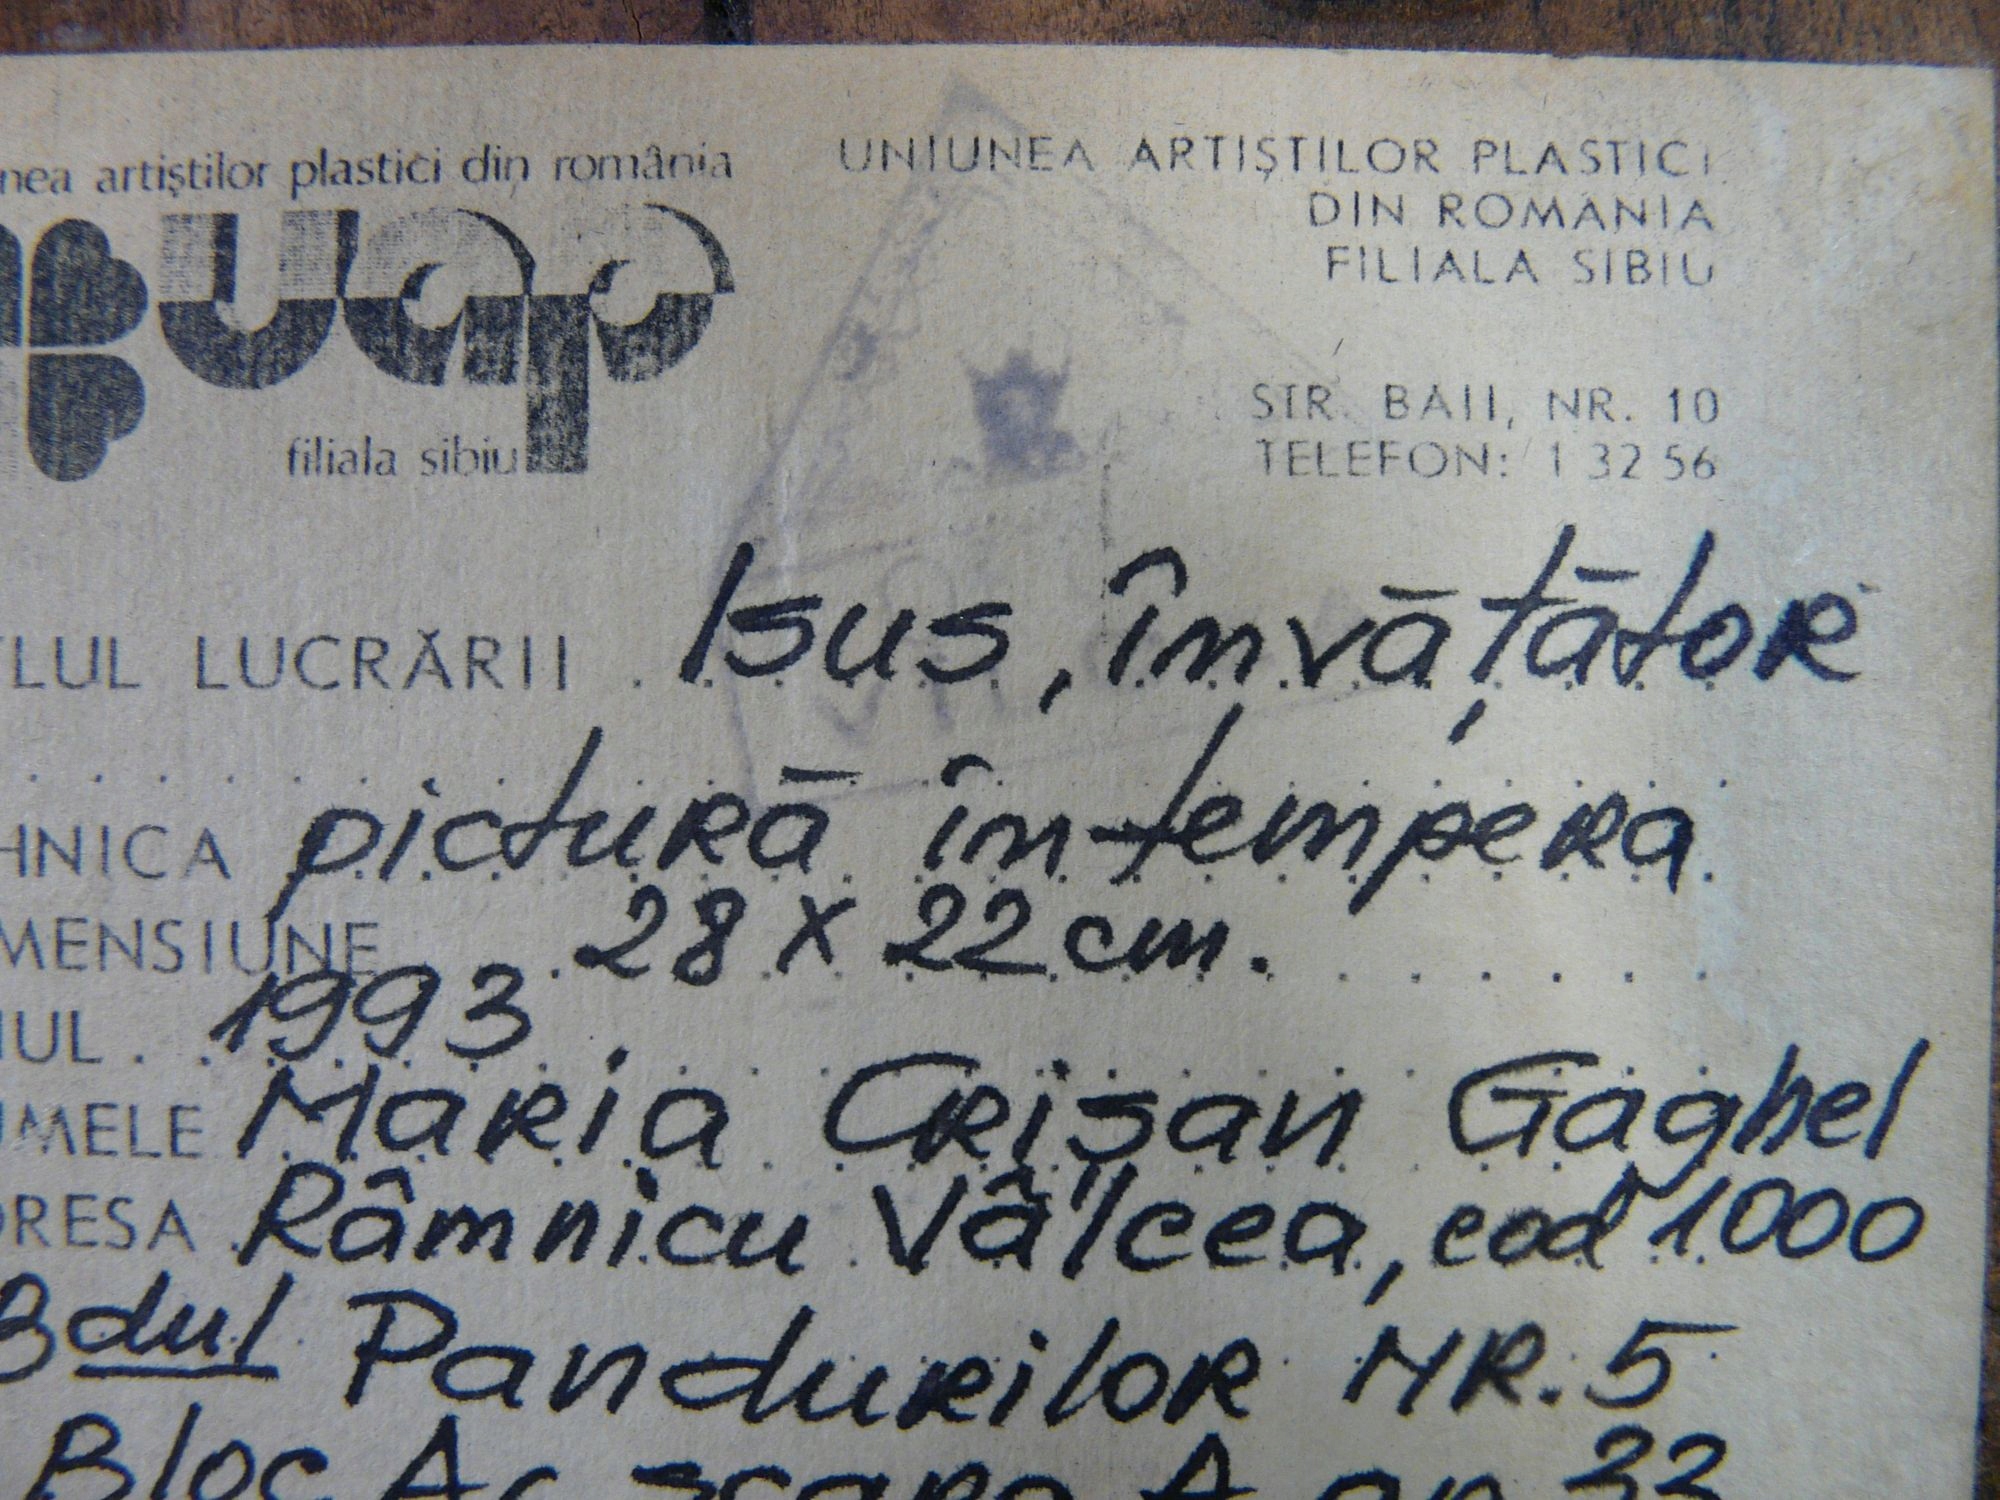 nea artiștilor plastici din românia
uap
filiala sibiu
UNIUNEA ARTIȘTILOR PLASTICI
DIN ROMANIA
FILIALA SIBIU
STR. BAII, NR. 10
TELEFON: 1 32 56
LUL LUCRĂRII Isus, învățător
HNICA pictură în tempera
MENSIUNE 28 x 22 cm.
UL 1993
MELE Maria Crișan Gaghel
RESA Râmnicu Vâlcea, cod 1000
Bdul Pandurilor NR. 5
Bloc A A ap 33